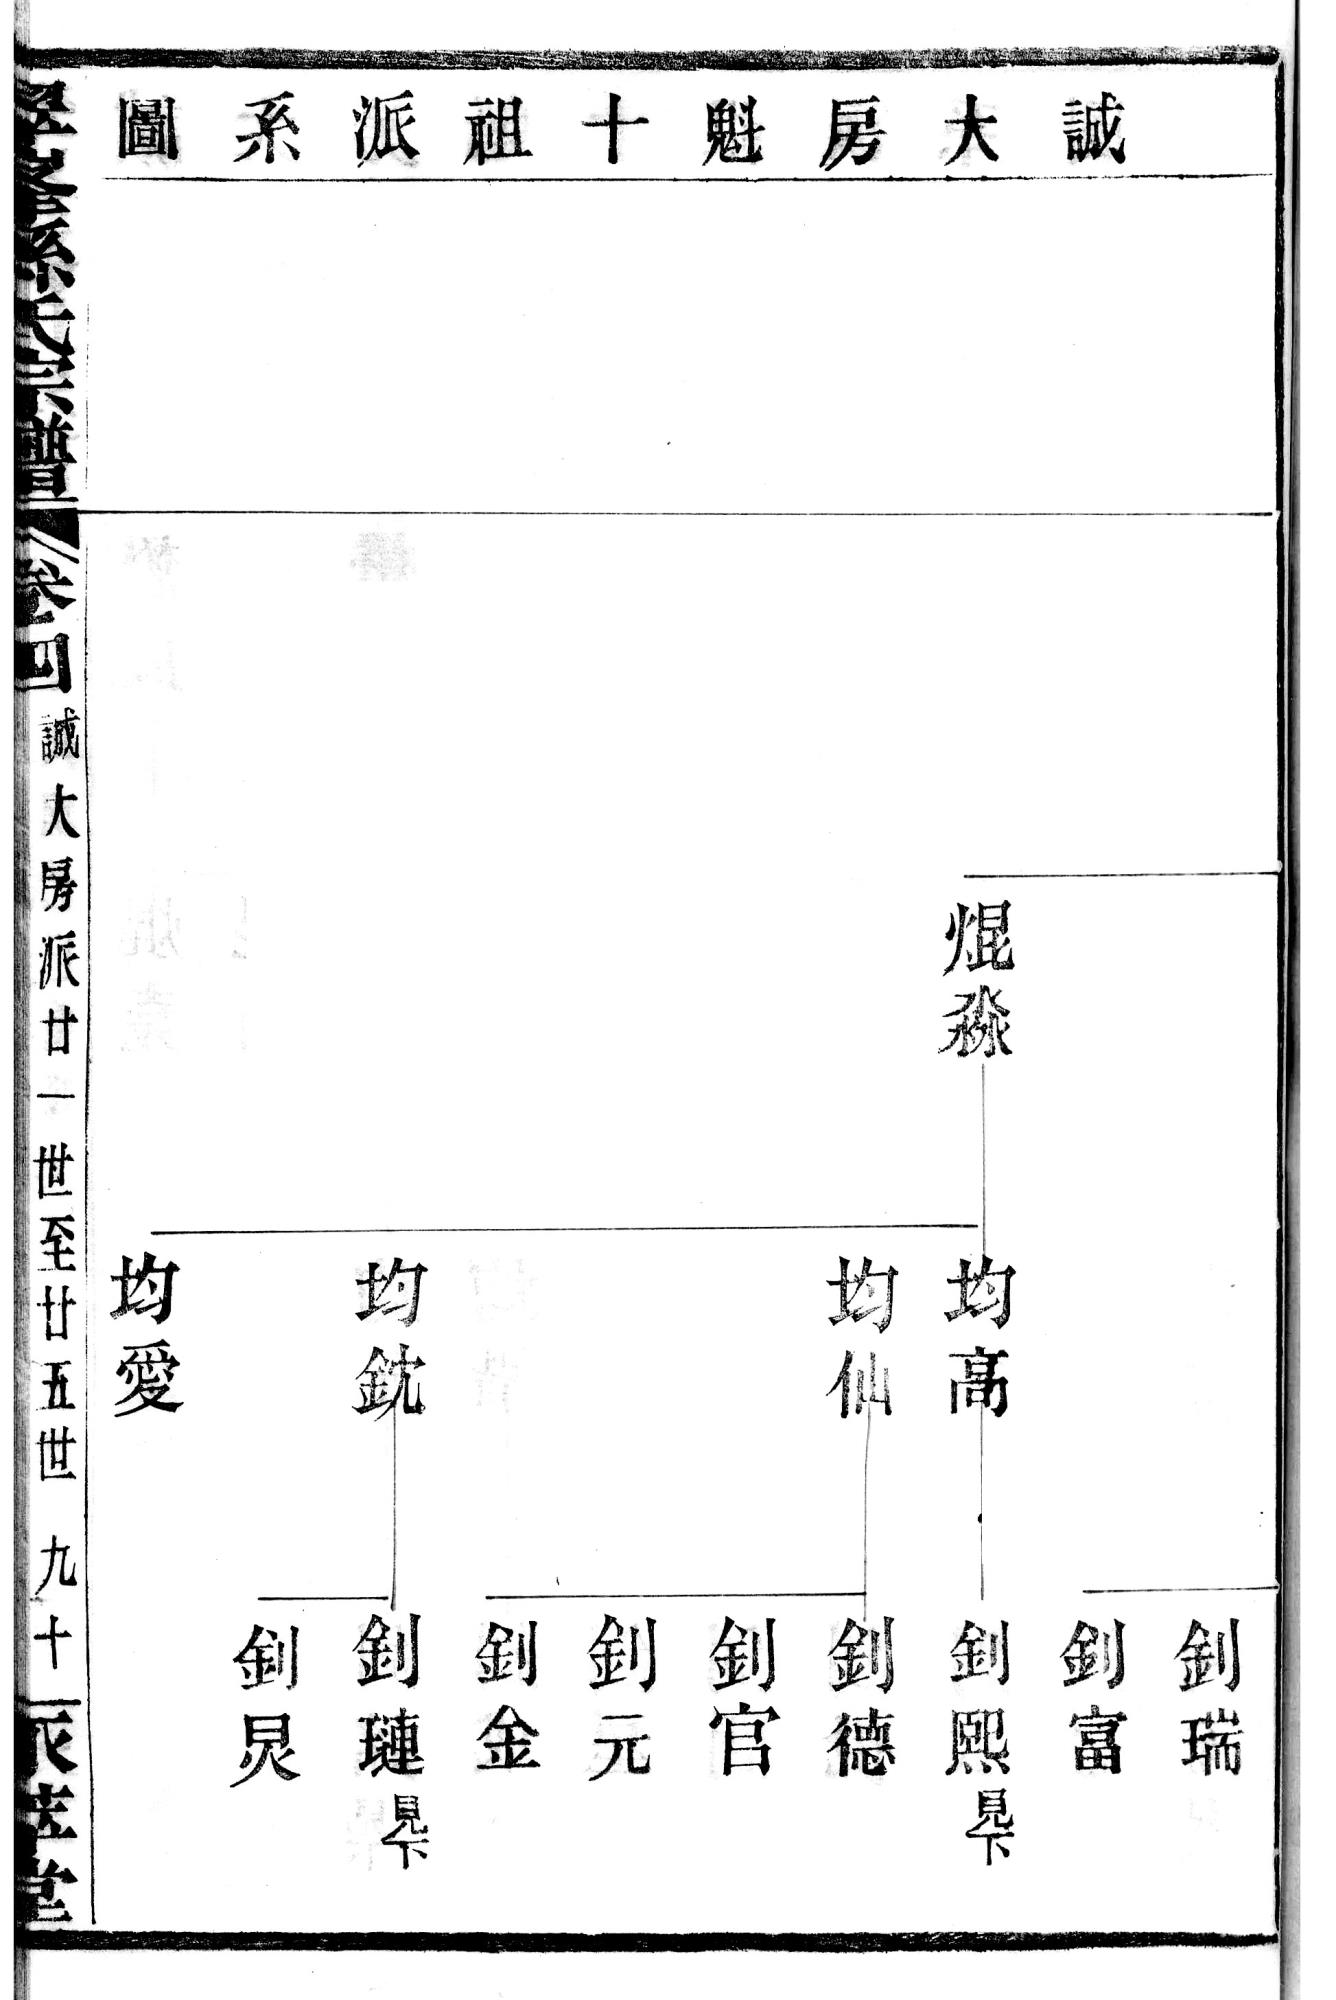 誠大房魁十祖派系圖
焜淼
均高
均仙
均鈂
均愛
釗瑞
釗富
釗熙見下
釗德
釗官
釗元
釗金
釗璉見下
釗炅
孫氏宗譜
卷四
誠大房派廿一世至廿五世
九十
堂